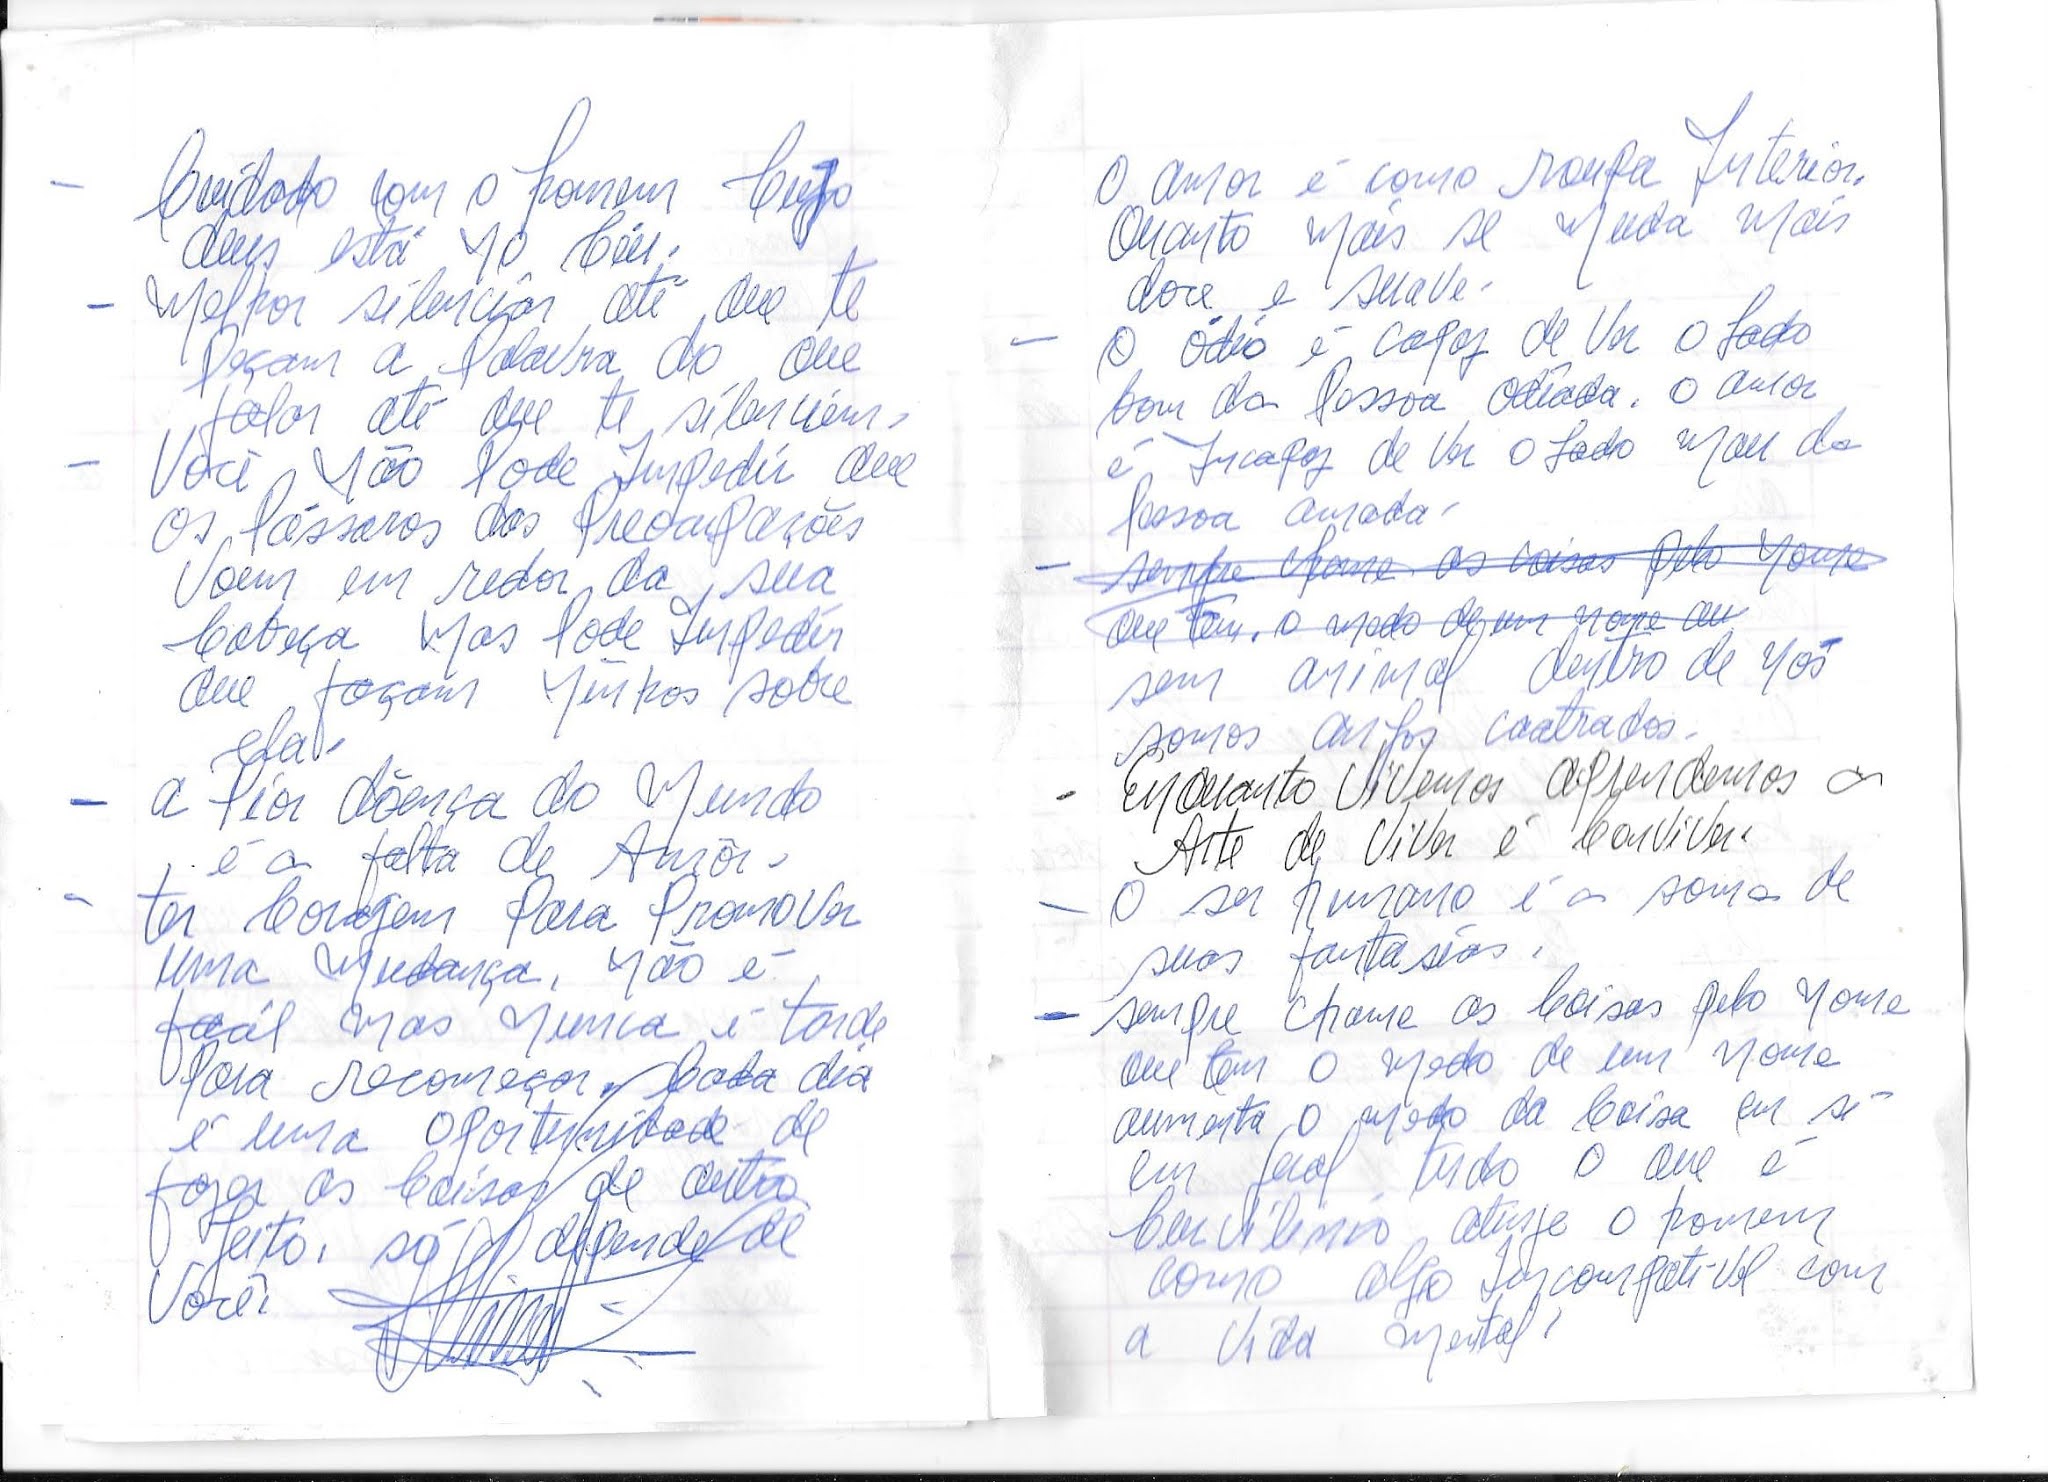 - Cuidado com o homem cujo
deus está no Céu.
- Melhor silenciar até que te
peçam a palavra do que
falar até que te silenciem.
- Você não pode Impedir que
os pássaros das preocupações
voem em redor da sua
cabeça mas pode Impedir
que façam ninhos sobre
ela.
- a pior doença do mundo
é a falta de Amor.
- ter coragem para promover
uma mudança, não é
fácil mas nunca é tarde
para recomeçar. Cada dia
é uma oportunidade de
fazer as coisas de outro
jeito, só depende de
você.
O amor é como roupa Interior.
Quanto mais se muda mais
doce e suave.
- O ódio é capaz de ver o lado
bom da pessoa odiada. o amor
é Incapaz de ver o lado mau da
pessoa amada.
- sempre chame as coisas pelo nome
que tem. o medo de um nome au
sem animal dentro de nós
somos anjos castrados.
- Enquanto vivemos aprendemos a
Arte de viver é conviver.
- O ser humano é a soma de
suas fantasias.
- sempre chame as coisas pelo nome
que tem o medo de um nome
aumenta o medo da coisa em si
em geral tudo o que é
atinge o homem
como algo Incompatível com
a vida mental.